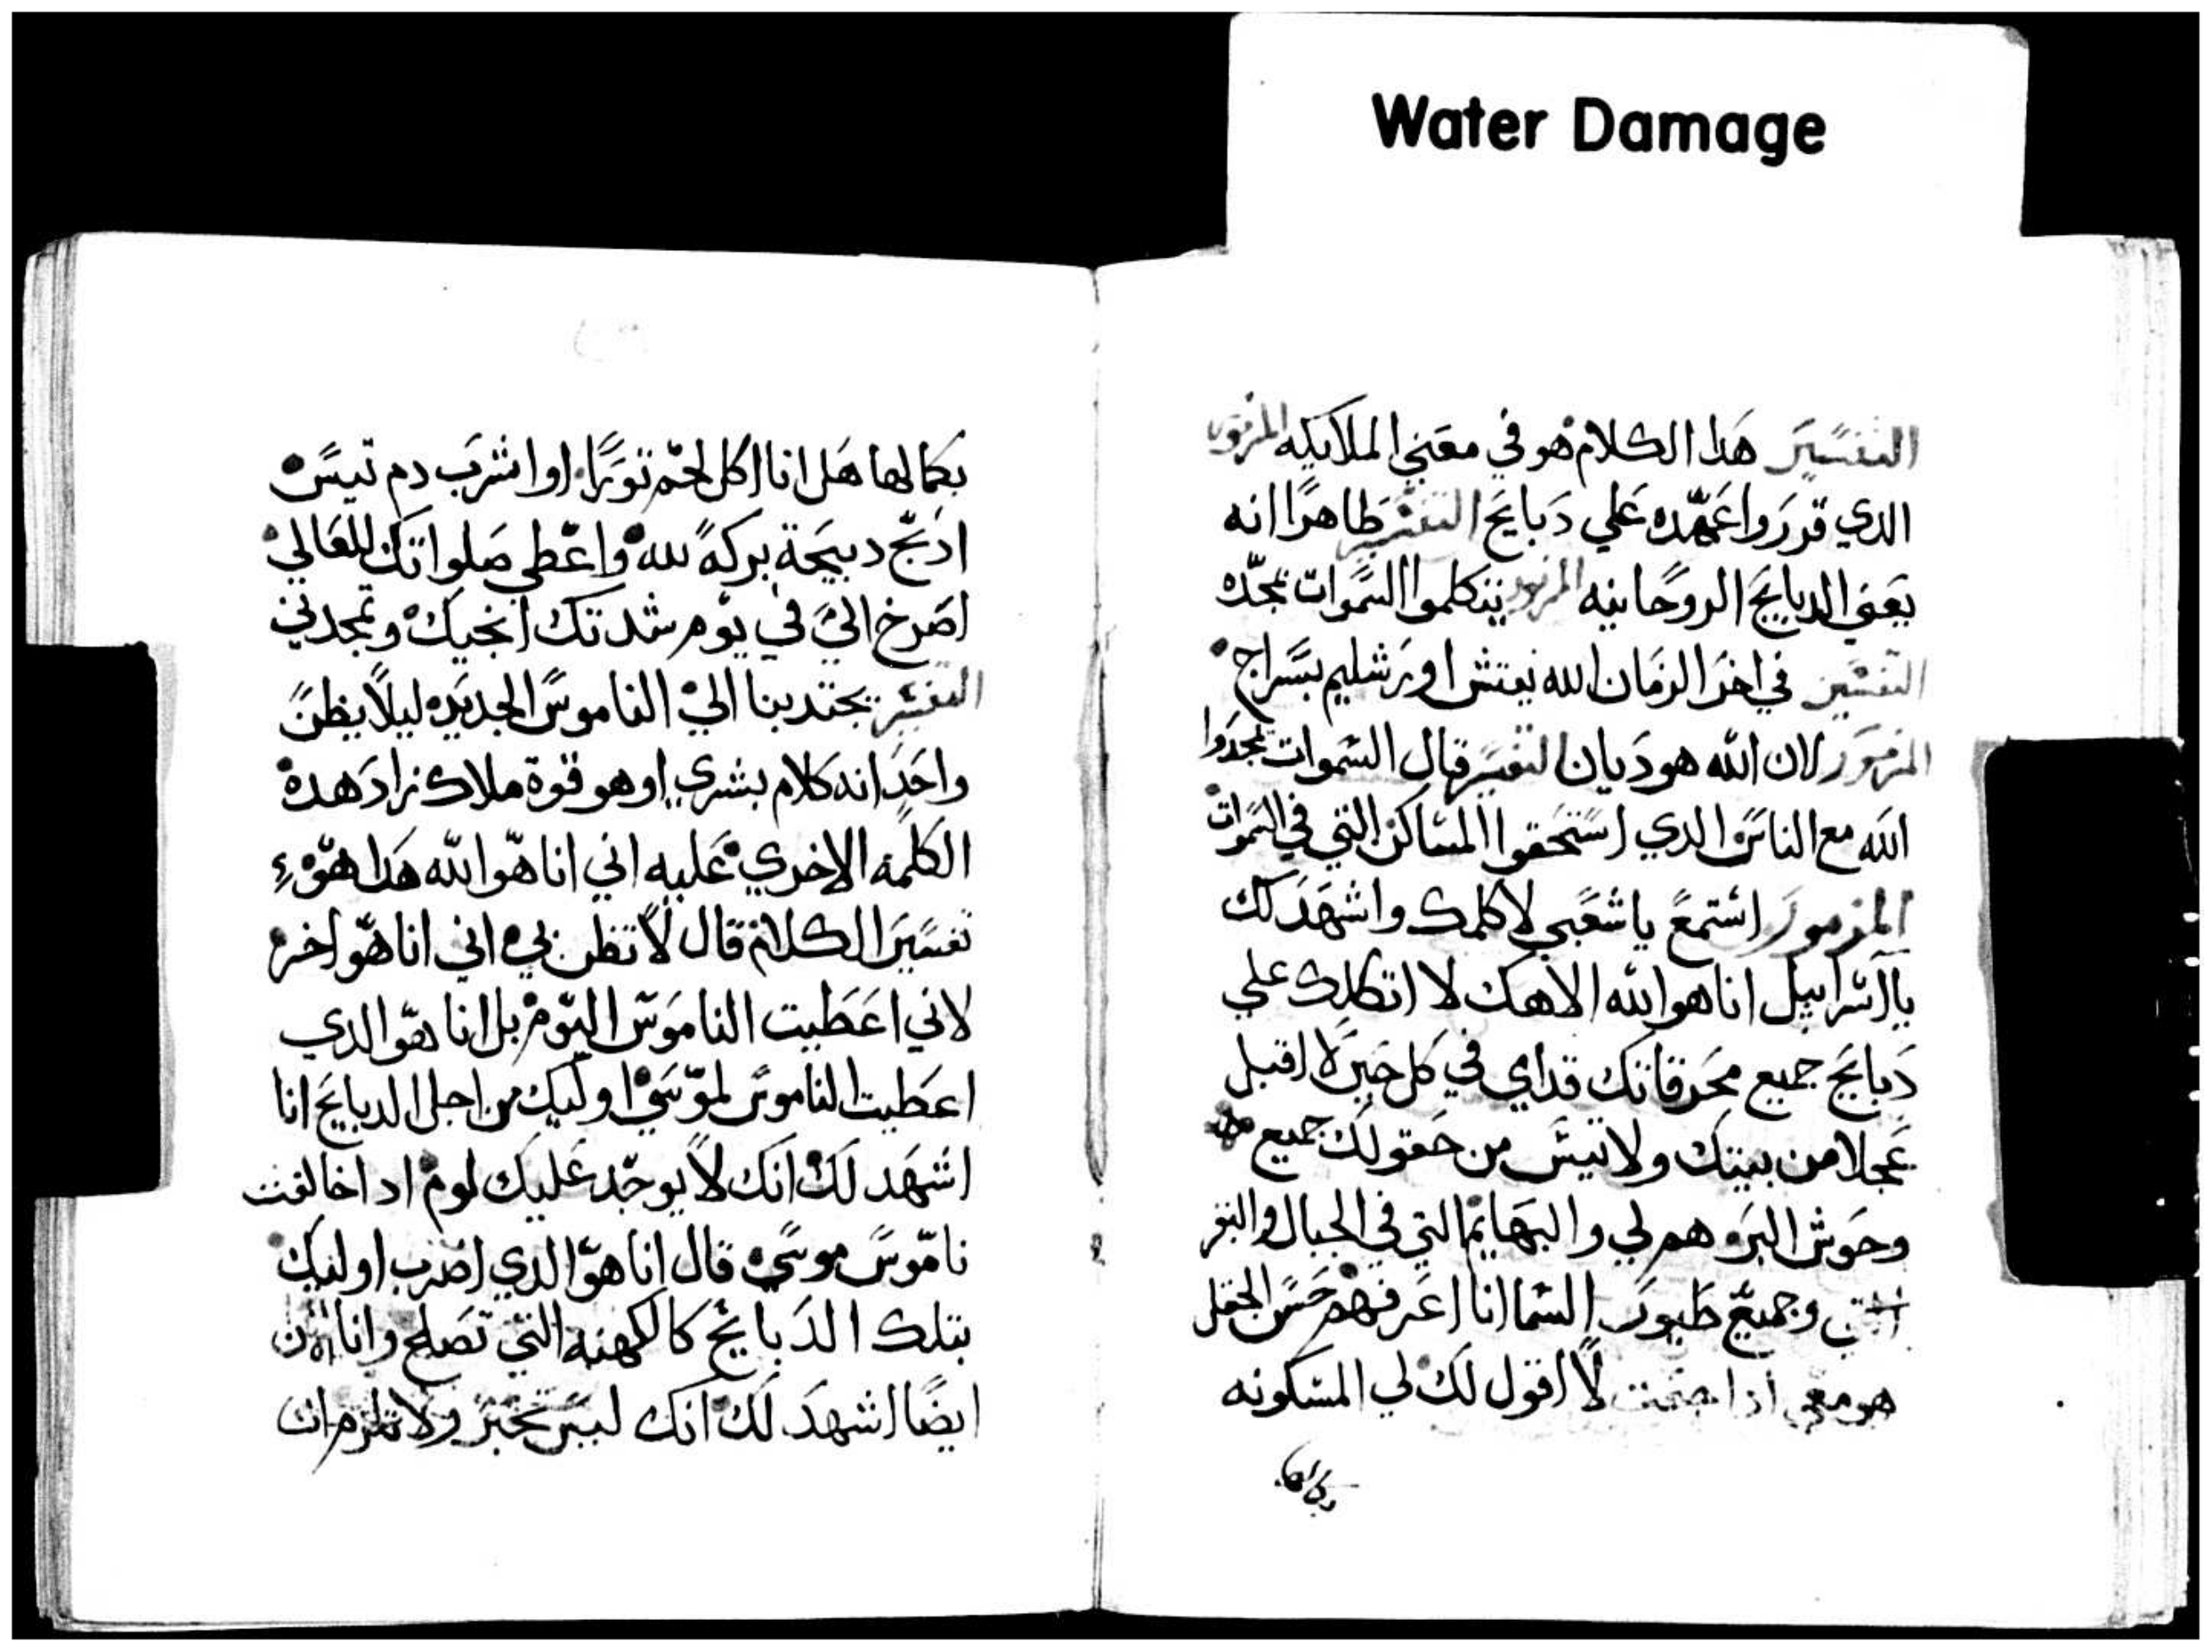 Water Damage
التفسير هدا الكلام هو في معني الملايكه المزمور
الدي قرروا عهده علي دبايح التفسير ظاهرا انه
يعني الدبايح الروحانيه المزمور يتكلموا السموات بمجده
التفسير في اخر الزمان الله يفتش اورشليم بسراج
المزمور لان الله هو ديان التفسير قال السموات تمجدوا
الله مع الناس الدي استحقوا المساكن التي في السموات
المزمور استمع يا شعبي لاكلمك واشهد لك
يا اسراييل انا هو الله الاهك لا اتكلرك علي
دبايح جميع محرقاتك قداي في كل حين لا اقبل
عجلا من بيتك ولا تيس من حقولك جميع
وحوش البر هم لي والبهايم التي في الجبال والبقر
وجميع طيور السما انا اعرفهم حسن الحقل
هو معي ادا جعت لا اقول لك لي المسكونه
بكمالها
بكمالها هل انا اكل لحم تورا او اشرب دم تيس
ادبح دبيحة بركه لله واعطي صلواتك للعالي
اصرخ الي في يوم شدتك انجيك وتمجدني
التفسير يجتدبنا الي الناموس الجديده ليلا يظن
واحد انه كلام بشري او هو قوة ملاك زاد هده
الكلمه الاخري عليه اني انا هو الله هدا هو
تفسير الكلام قال لا تظن بي اني انا هو اخر
لاني اعطيت الناموس اليوم بل انا هو الدي
اعطيت الناموس لموسي اوليك من اجل الدبايح انا
اشهد لك انك لا يوجد عليك لوم ادا خالفت
ناموس موسي قال انا هو الدي اضرب اوليك
بتلك الدبايح كالكهنه التي تصلح وانا الان
ايضا اشهد لك انك ليس تخبز ولا تلزم ان